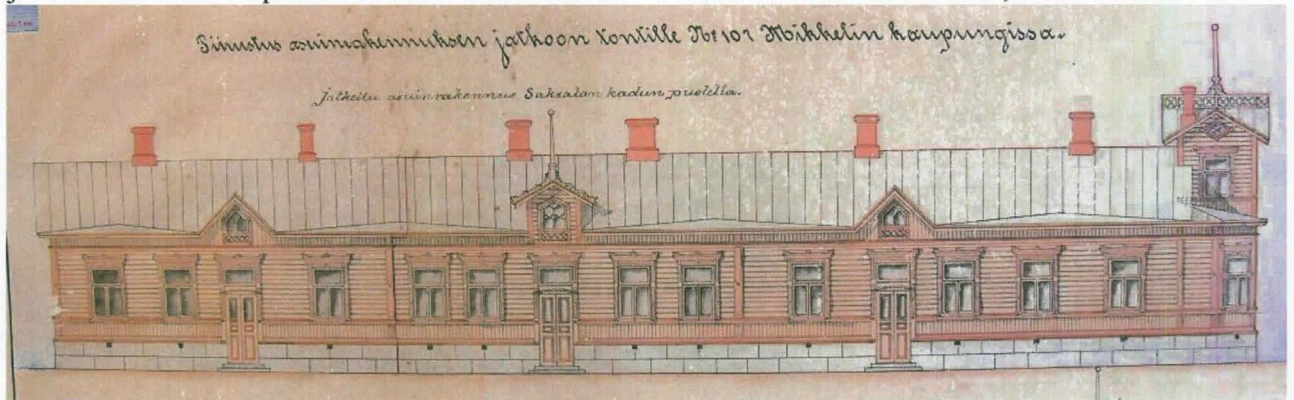 Piirustus asuinrakennuksen jatkoon tontille No 107 Mikkelin kaupungissa.
Jatkettu asuinrakennus Saksalan kadun puolella.